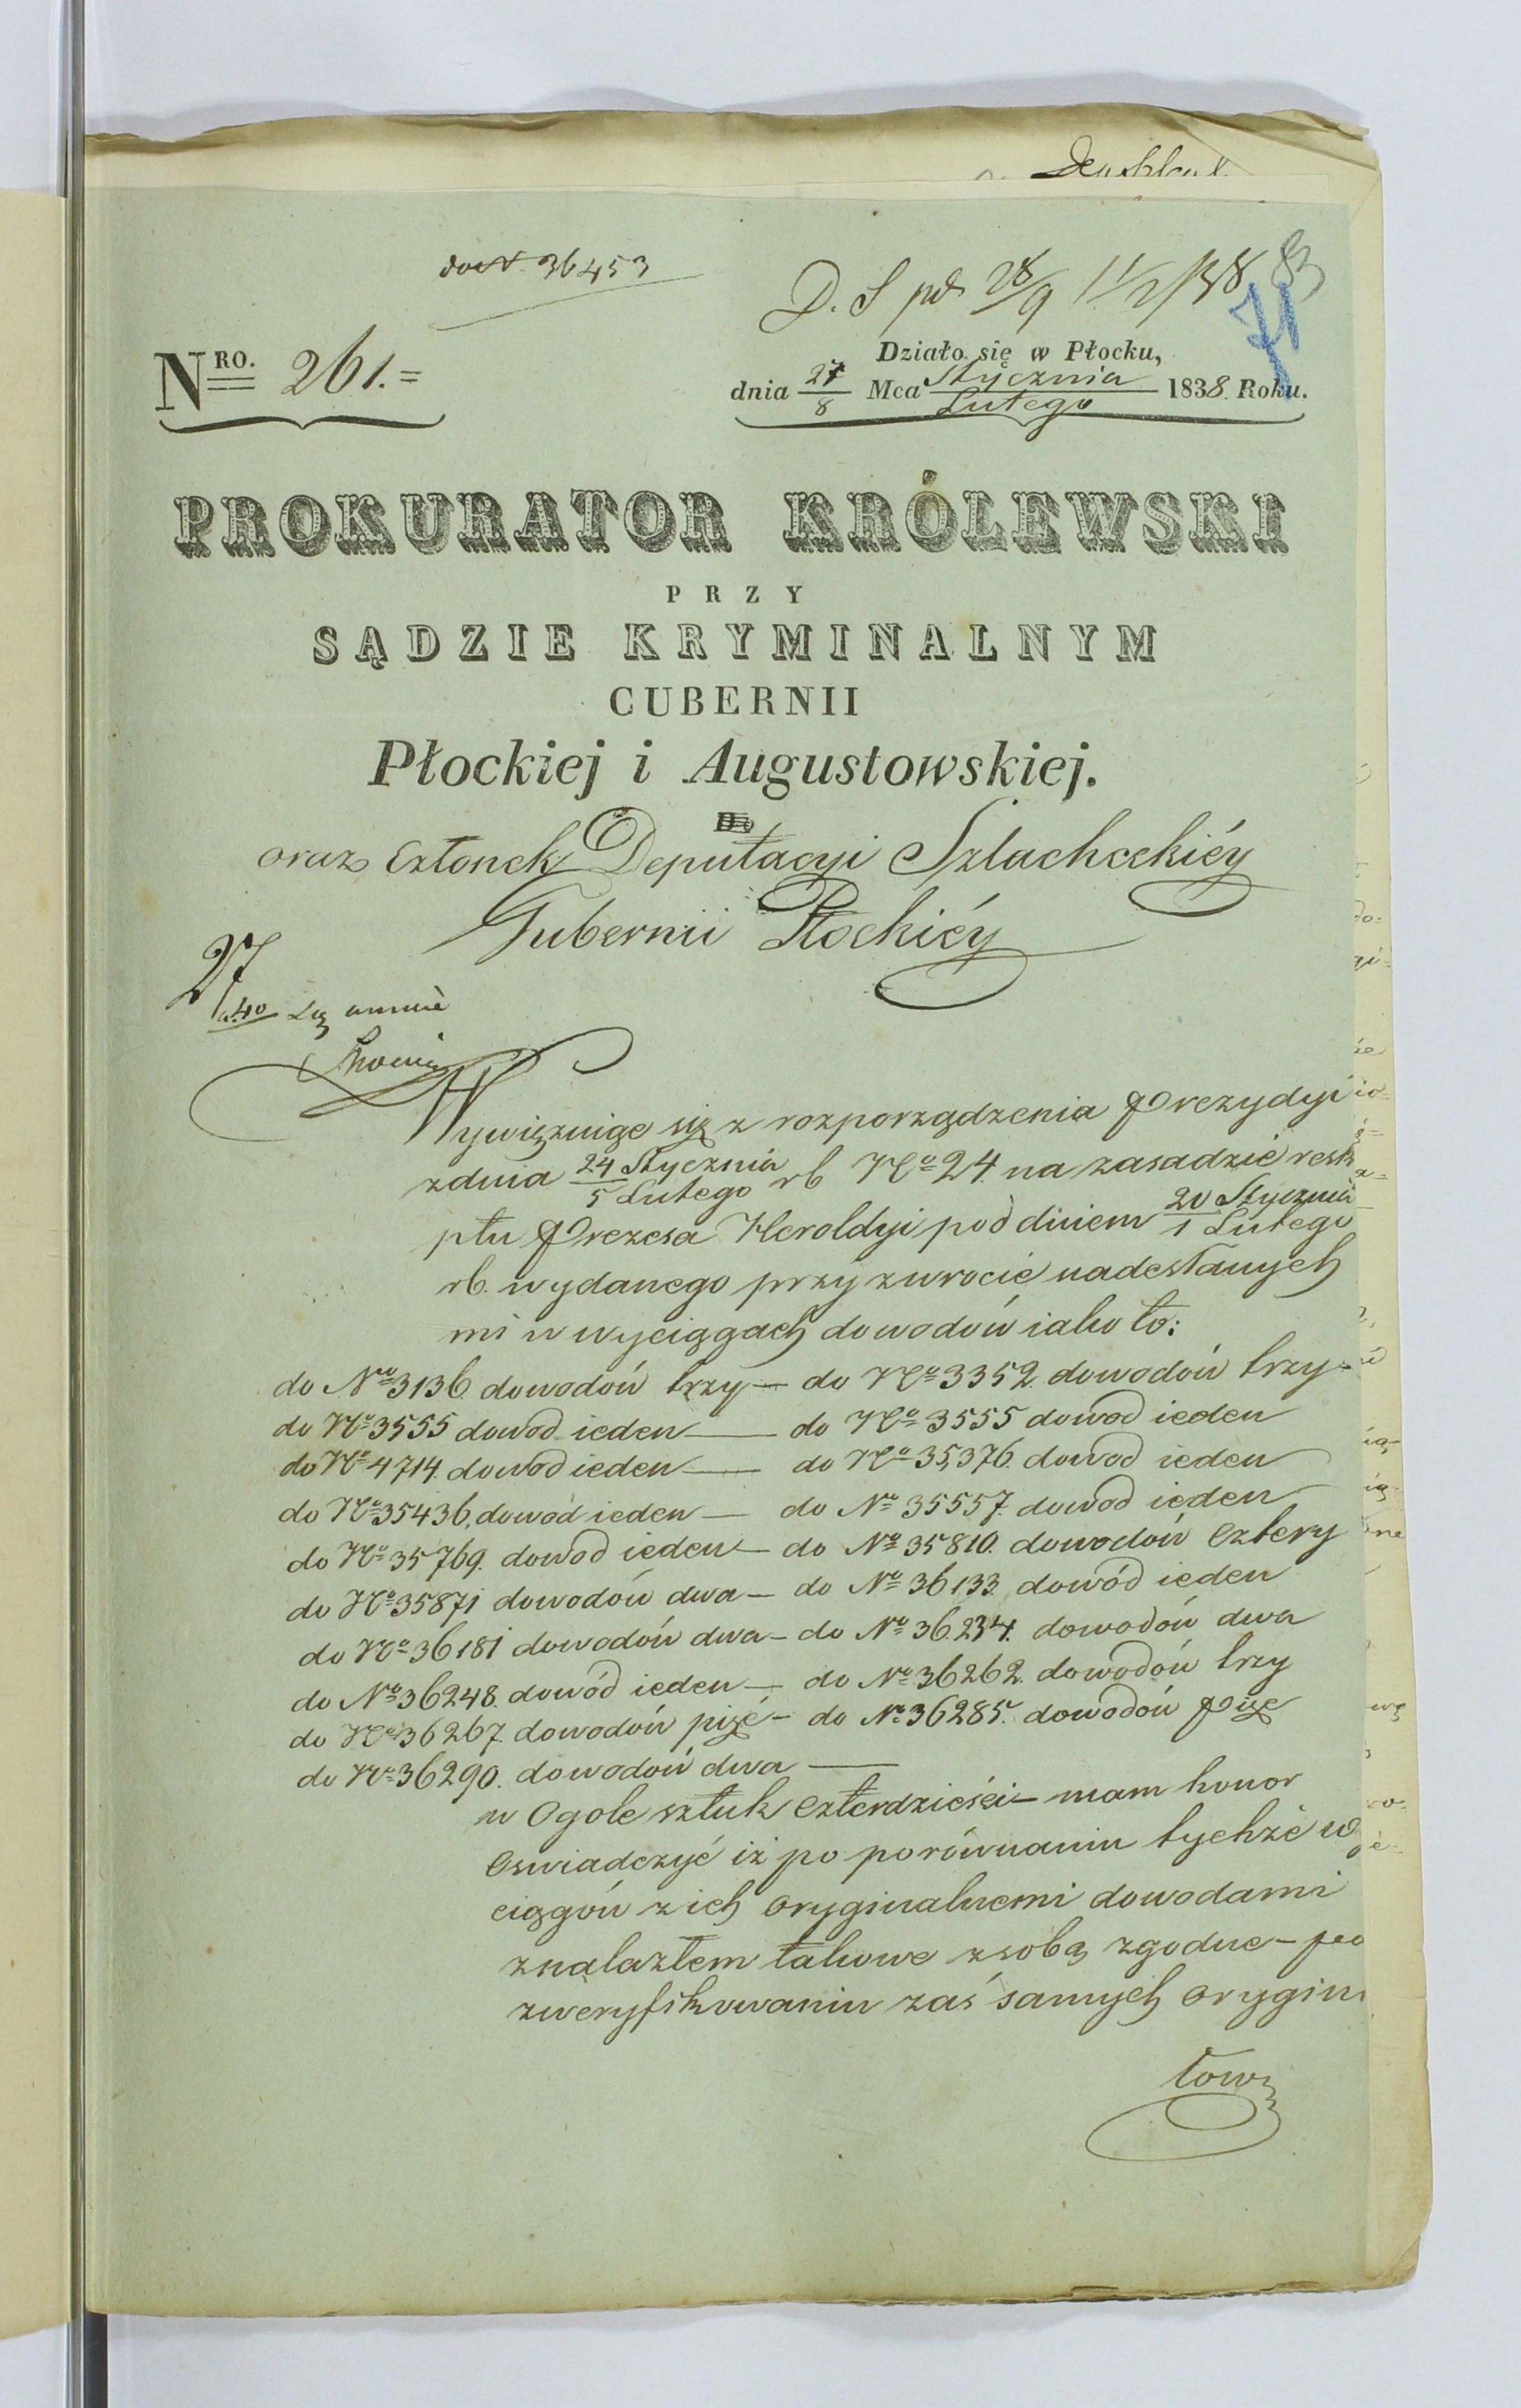 do N 36453
D. S pd 28/9 11/2/38
83
71
NRO. 261.=
Działo się w Płocku,
dnia 27/8 Mca Stycznia/Lutego 1838 Roku.
PROKURATOR KRÓLEWSKI
PRZY
SĄDZIE KRYMINALNYM
CUBERNII
Płockiej i Augustowskiej.
Do
oraz Członek Deputacyi Szlacheckiéy
Gubernii Płockiéy
27
Wywięzuiąc się z rozporządzenia Prezydyi
zdnia 24 Stycznia/5 Lutego rb No 24 na zasadzie resk
ptu Prezesa Heroldyi pod dniem 20 Stycznia/1 Lutego
rb. wydanego przy zwrocie nadesłanych
mi w wyciągach dowodów iako to:
do No 3136 dowodów trzy — do No 3352 dowodów trzy
do No 3555 dowod ieden — do No 3555 dowod ieden
do No 4714 dowod ieden — do No 35,376. dowod ieden
do No 35436, dowód ieden — do No 35557. dowod ieden
do No 35769. dowod ieden — do No 35810. dowodów cztery
do No 35871 dowodów dwa — do No 36133 dowód ieden
do No 36181 dowodów dwa — do No 36.234. dowodów dwa
do No 36248. dowód ieden — do No 36262. dowodów trzy
do No 36267. dowodów pięć — do No 36285. dowodów pięc
do No 36290. dowodów dwa —
w Ogole sztuk czterdzieści — mam honor
Oswiadczyć iż po porównaniu tychże wy
ciągów z ich oryginalnemi dowodami
znalazłem takowe z sobą zgodne — po
zweryfikowaniu zaś samych orygin
łow